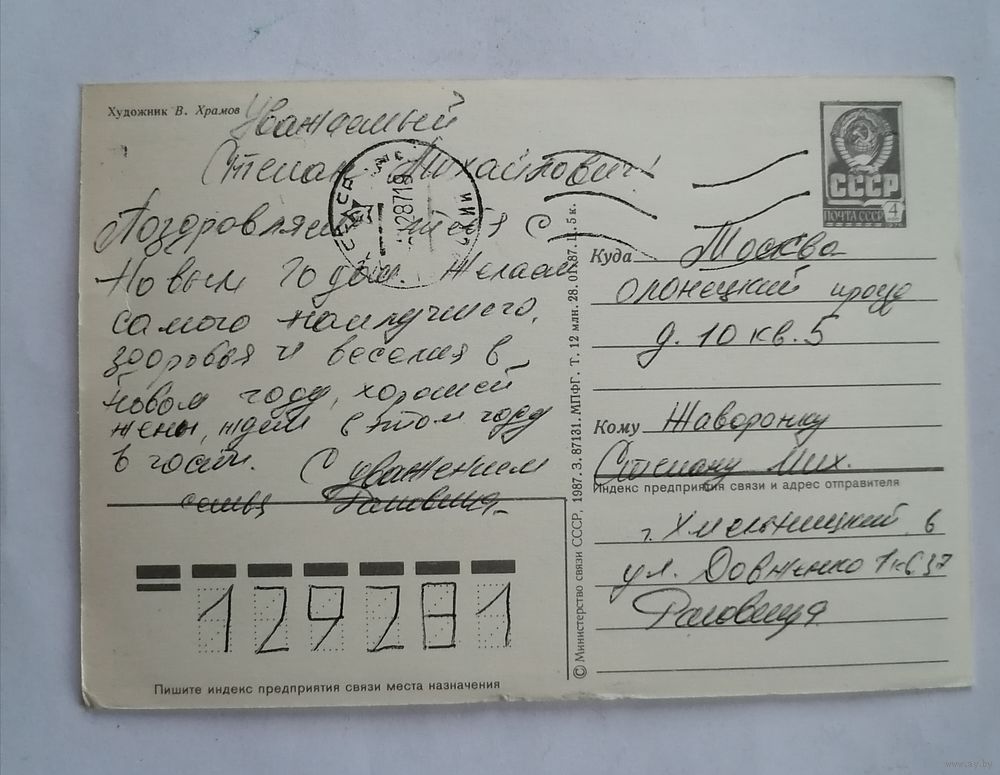 Художник В. Храмов
Уважаемый
Степан Михайлович!
Поздравляем тебя с
Новым годом. Желаем
самого наилучшего,
здоровья и веселья в
Новом году, хорошей
жены, ждем в этом году
в гости. С уважением
семья
СССР
ПОЧТА СССР 4
Куда Москва
Олонецкий проезд
д. 10 кв. 5
Кому Жаворонку
Степану Мих.
Индекс предприятия связи и адрес отправителя
г. Хмельницкий 6
ул. Довженко 1 кв 37
129281
Пишите индекс предприятия связи места назначения
© Министерство связи СССР, 1987. З. 87131. МПФГ. Т. 12 млн. 28. 01. 87. Ц. 5 к.
www.ay.by